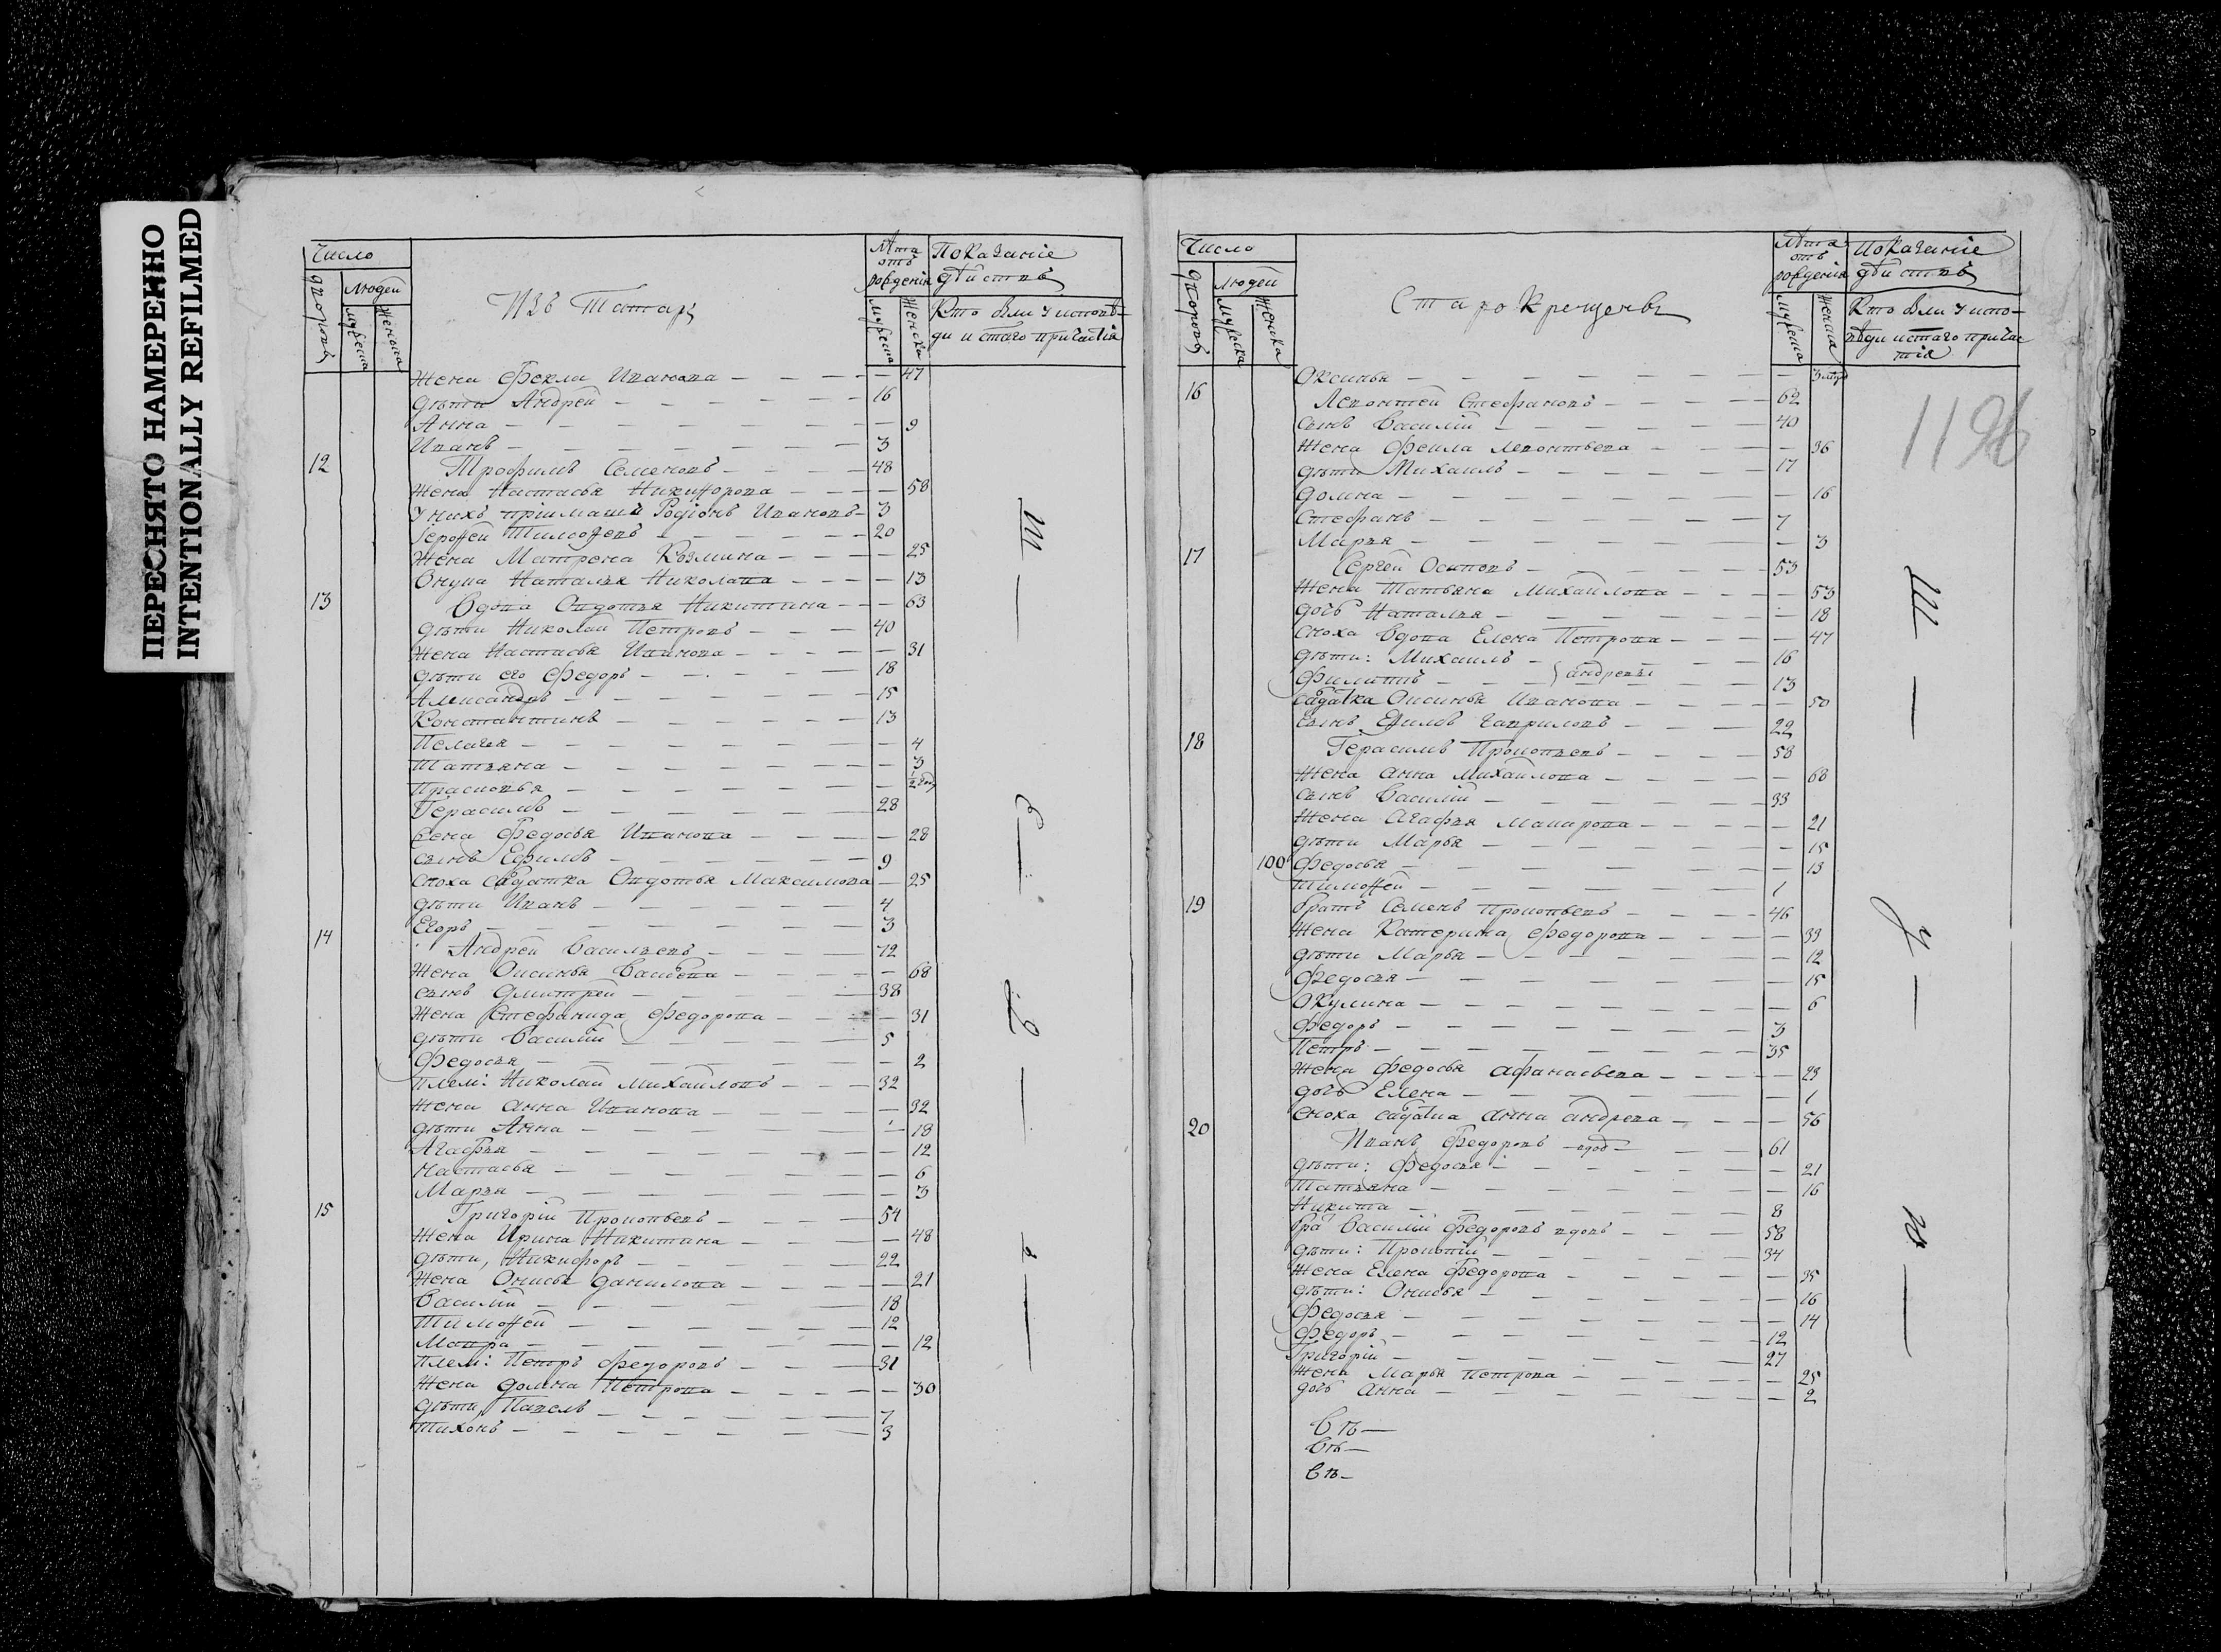 ПЕРЕСНЯТО НАМЕРЕННО
INTENTIONALLY REFILMED
Число
дворовъ
людей
мужеска
женска
Изъ Татаръ
Лѣта отъ рожденія
мужеска
женска
Показаніе дѣйствъ
Кто были у исповѣди и стаго причастія
Жена Фекла Иванова — 47
дѣти Андрей — 16
Анна — 9
Иванъ — 3
12 Трофимъ Семеновъ — 48
Жена Настасья Никиѳорова — 58
У нихъ пріимашъ Родіонъ Ивановъ — 3
Іероѳей Тимоѳеевъ — 20
Жена Матрена Козмина — 25
Внука Наталья Николаева — 13
13 Вдова Овдотья Никитина — 63
дѣти Николай Петровъ — 40
Жена Настасья Иванова — 31
дѣти его Федоръ — 18
Александръ — 15
Константинъ — 13
Пелагея — 4
Татьяна — 3
Прасковья — 1/2 год
Герасимъ — 28
Жена Федосья Иванова — 28
сынъ Ефимъ — 9
сноха салдатка Овдотья Максимова — 25
дѣти Иванъ — 4
Егоръ — 3
14 Андрей Васильевъ — 72
Жена Оксинья — 68
сынъ Дмитрей — 38
Жена Стефанида Федорова — 31
дѣти Василій — 5
Федосья — 2
Плем: Николай Михайловъ — 32
Жена Анна Иванова — 32
дѣти Анна — 18
Агафья — 12
Настасья — 6
Марья — 3
15 Григорій Прокопьевъ — 54
Жена Ирина Никитина — 48
дѣти, Никифоръ — 22
Жена Онисья Данилова — 21
Василій — 18
Тимоѳей — 12
Мавра — 12
Плем: Петръ Федоровъ — 31
Жена Домна Петрова — 30
дѣти, Павелъ — 7
Тихонъ — 3
Число
дворовъ
людей
мужеска
женска
Старокрещены
Лѣта отъ рожденія
мужеска
женска
Показаніе дѣйствъ
Кто были у исповѣди и стаго причастія
119
Оксинья — 3
16 Леконтей Стефановъ — 62
сынъ Василій — 40
Жена Фекла Леконтьева — 36
дѣти Михаилъ — 17
Домна — 16
Стефанъ — 7
Марья — 3
17 Сергей Осиповъ — 53
Жена Татьяна Михайлова — 53
дочь Наталья — 18
Сноха вдова Елена Петрова — 47
дѣти: Михаилъ — 16
Филиппъ — андреевы — 13
салдатка Оксинья Иванова — 50
сынъ Ефимъ Гавриловъ — 22
18 Герасимъ Прокопьевъ — 58
Жена Анна Михайлова — 68
сынъ Василій — 33
Жена Агафья Макарова — 21
дѣти Марья — 15
100 Федосья — 13
Тимоѳей — 1
19 братъ Семенъ Прокопьевъ — 46
Жена Катерина Федорова — 33
дѣти Марья — 12
Федосья — 15
Окулина — 6
Федоръ — 3
Петръ — 35
Жена Федосья Афанасьева — 23
дочь Елена — 1
Сноха Анна Андреева — 56
20 Иванъ Федоровъ вдов — 61
дѣти: Федосья — 21
Татьяна — 16
Никита — 8
бра Василій Федоровъ вдовъ — 58
дѣти: Прокопій — 34
Жена Елена Федорова — 35
дѣти: Онисья — 16
Федосья — 14
Федоръ — 12
Григорій — 27
Жена Марья Петрова — 25
дочь Анна — 2